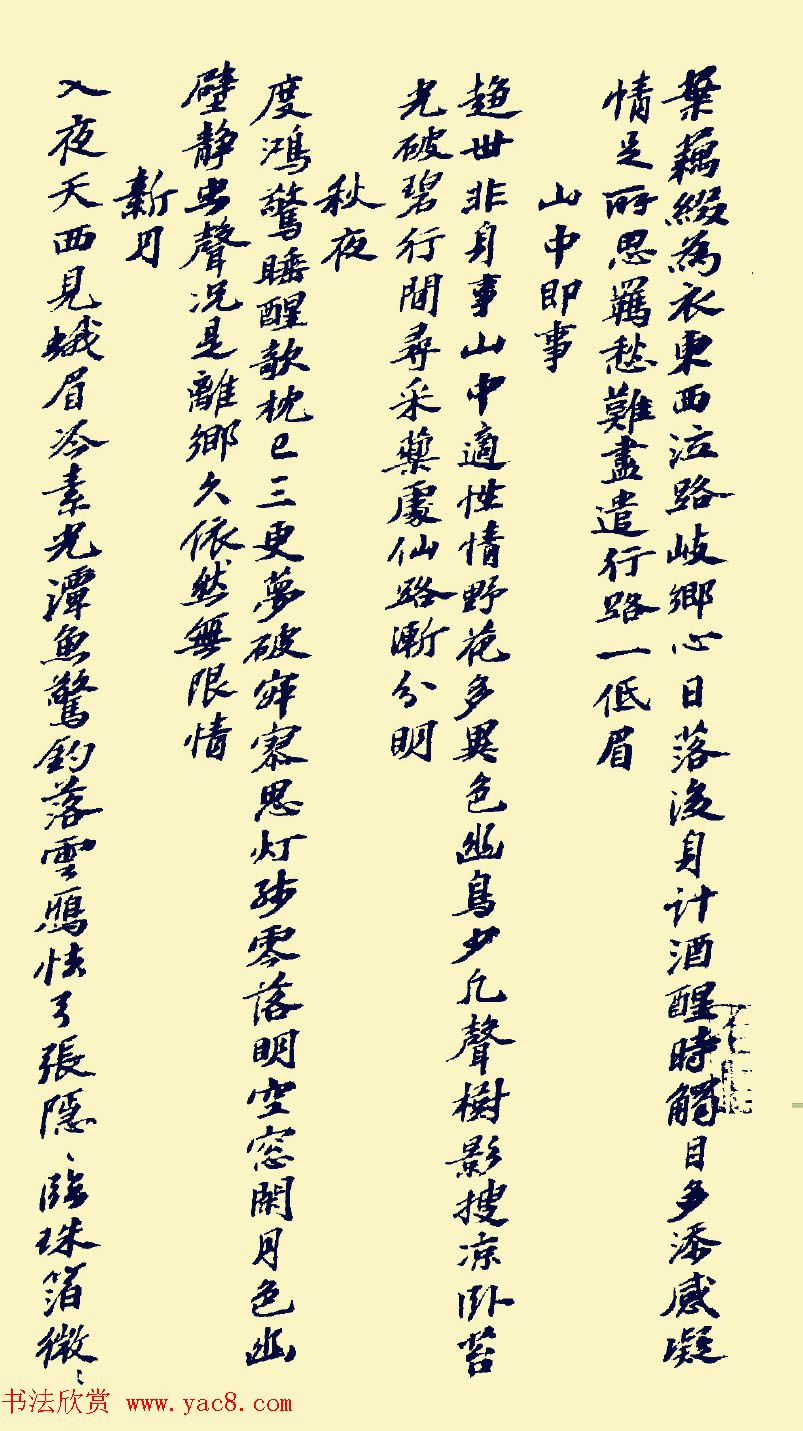 葉藕綴為衣東西泣路岐鄉心日落後身計酒醒時觸目多添感凝
情足所思羈愁難盡遣行路一低眉
山中即事
趨世非身事山中適性情野花多異色幽鳥少凡聲樹影搜涼卧苔
光破碧行閒尋采藥處仙路漸分明
秋夜
度鴻驚睡醒欹枕已三更夢破寂寥思灯殘零落明空窓閑月色幽
壁静虫聲况是離鄉久依然無限情
新月
入夜天西見蛾眉冷素光潭魚驚釣落雲鴈怯弓張隠、臨珠箔微、
书法欣赏 www.yac8.com